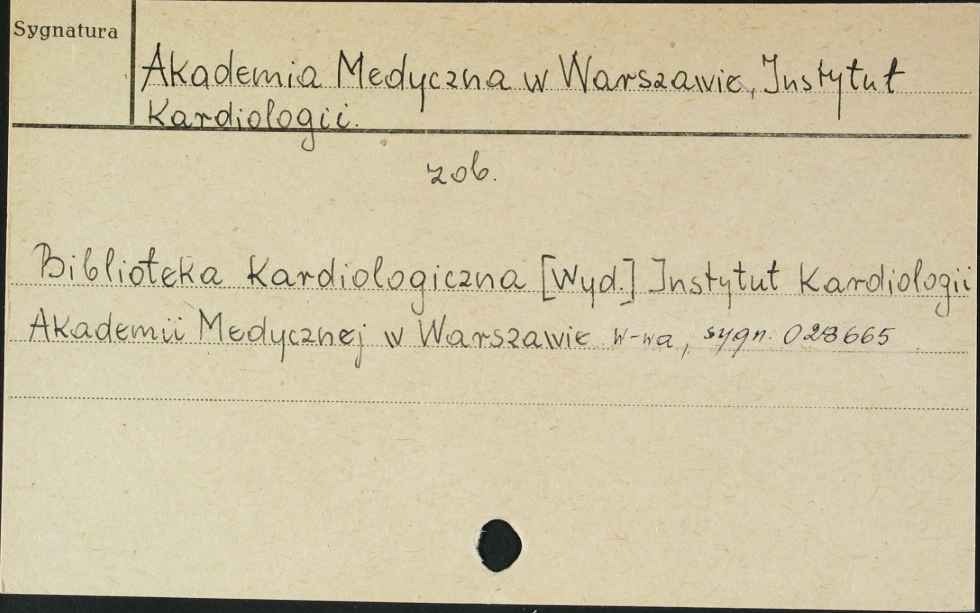 Sygnatura
Akademia Medyczna w Warszawie, Instytut
Kardiologii.
zob.
Biblioteka Kardiologiczna [Wyd.] Instytut Kardiologii
Akademii Medycznej w Warszawie W-wa, sygn. 028665